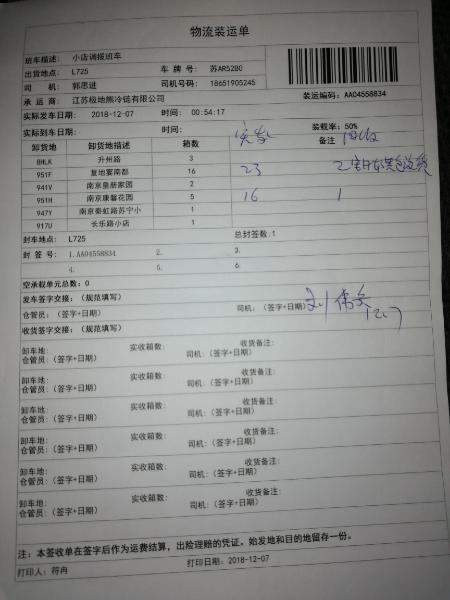 物流装运单
班车描述: 小店调拨班车
出货地点: L725 车 牌 号: 苏AR5280
司 机: 郭思进 司机号码: 18651905245
承 运 商: 江苏极地熊冷链有限公司 装运编码: AA04558834
实际发车日期: 2018-12-07 时间: 00:54:17
实际到车日期: 时间: 装载率: 50%
卸货地 卸货地描述 箱数 备注
8HLK 升州路 3
951F 复地宴南都 16 23
941V 南京皇册家园 2
951H 南京康馨花园 5 16 1
947Y 南京秦虹路苏宁小 1
917U 长乐路小店 1
封车地点: L725 总封签数:1
封 签 号: 1.AA04558834 2. 3.
4. 5. 6.
空承载单元总数: 0
发车签字交接: (规范填写)
仓管员: (签字+日期) 司机: (签字+日期) 12.7
收货签字交接: (规范填写)
卸车地: 实收箱数: 收货备注:
仓管员: (签字+日期) 司机: (签字+日期)
卸车地: 实收箱数: 收货备注:
仓管员: (签字+日期) 司机: (签字+日期)
卸车地: 实收箱数: 收货备注:
仓管员: (签字+日期) 司机: (签字+日期)
卸车地: 实收箱数: 收货备注:
仓管员: (签字+日期) 司机: (签字+日期)
卸车地: 实收箱数: 收货备注:
仓管员: (签字+日期) 司机: (签字+日期)
卸车地: 实收箱数: 收货备注:
仓管员: (签字+日期) 司机: (签字+日期)
注: 本签收单在签字后作为运费结算, 出险理赔的凭证。始发地和目的地留存一份。
打印人: 符冉 打印日期: 2018-12-07